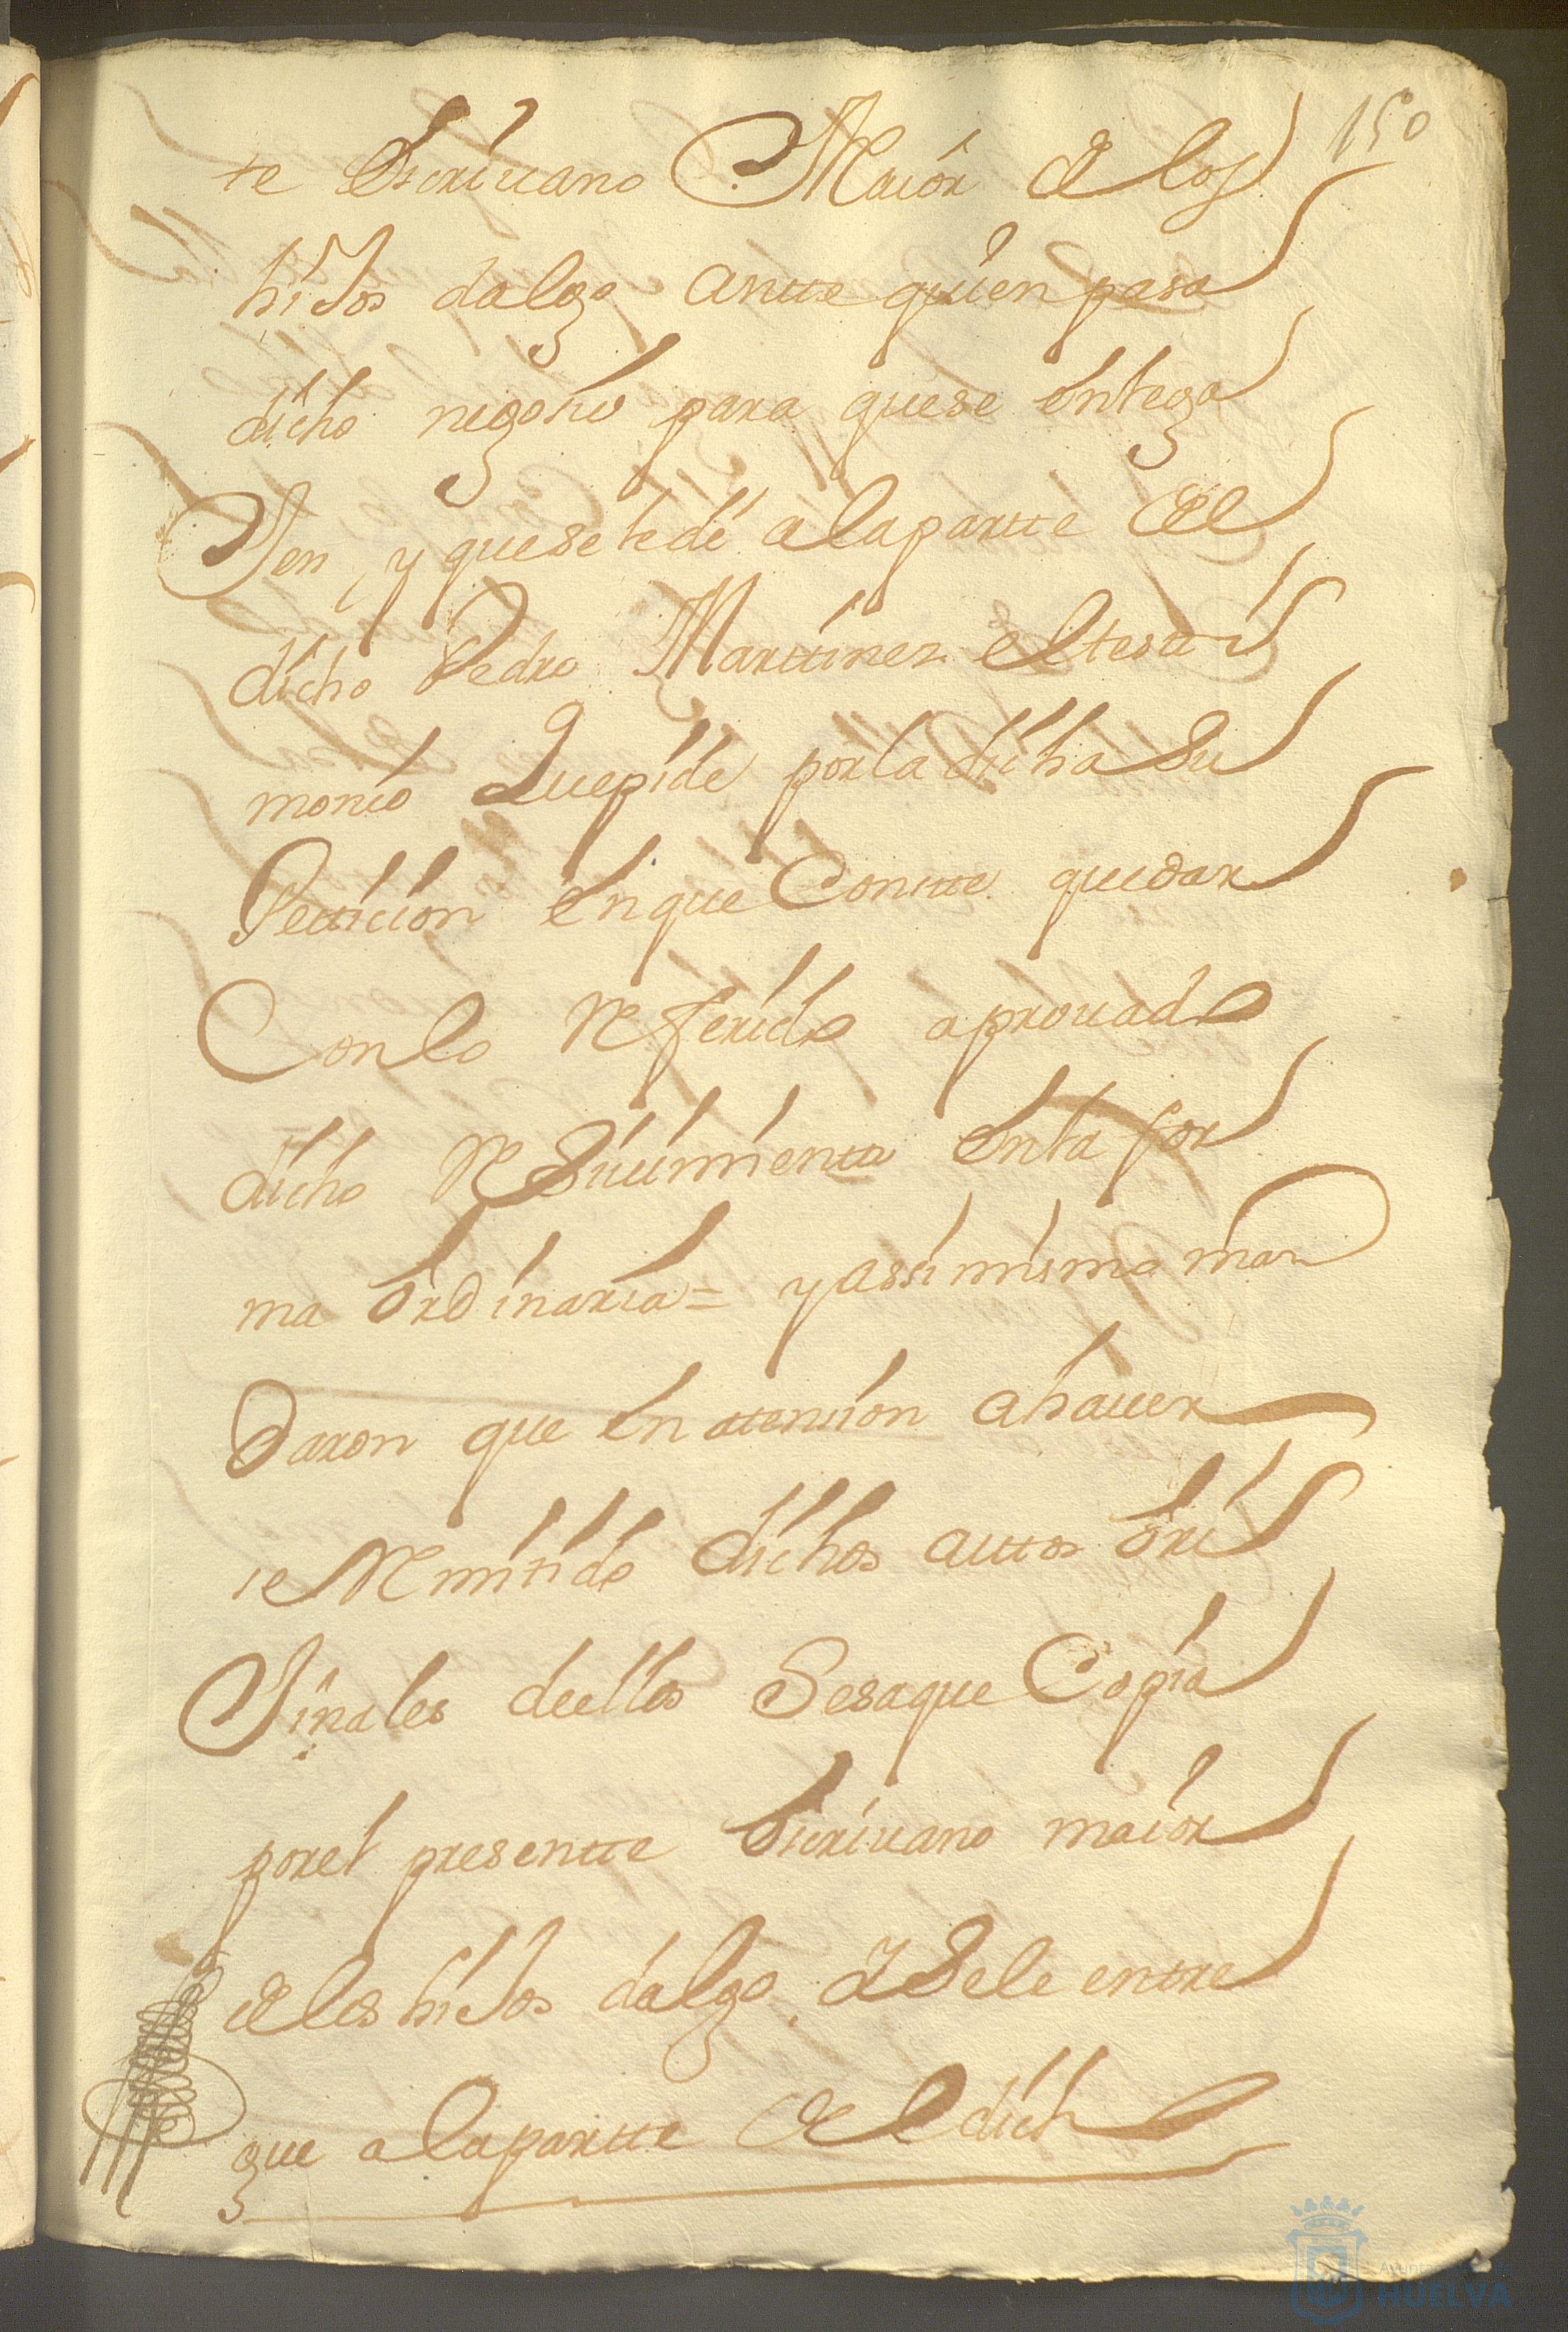 150
te escriuano Maior de los
hiJos dalgo antte quien pasa
dicho negozio para quese entrega
Jen, y quesele dé alapartte del
dicho Pedro Marttinez eltesti
monio Quepide porla dicha su
Petticion enque Contte quedar
Conlo Referido aprouado
dicho Resiuimientto enla for
ma ordinaria = y assimismo man
Daron que en attencion ahauer
se Remitido dichos auttos ori
Jinales deellos Sesaque Copia
porel presentte escriuano maior
delos hiJos dalgo Y Sele entre
gue alapartte del dicho
Ayuntamiento de
HUELVA